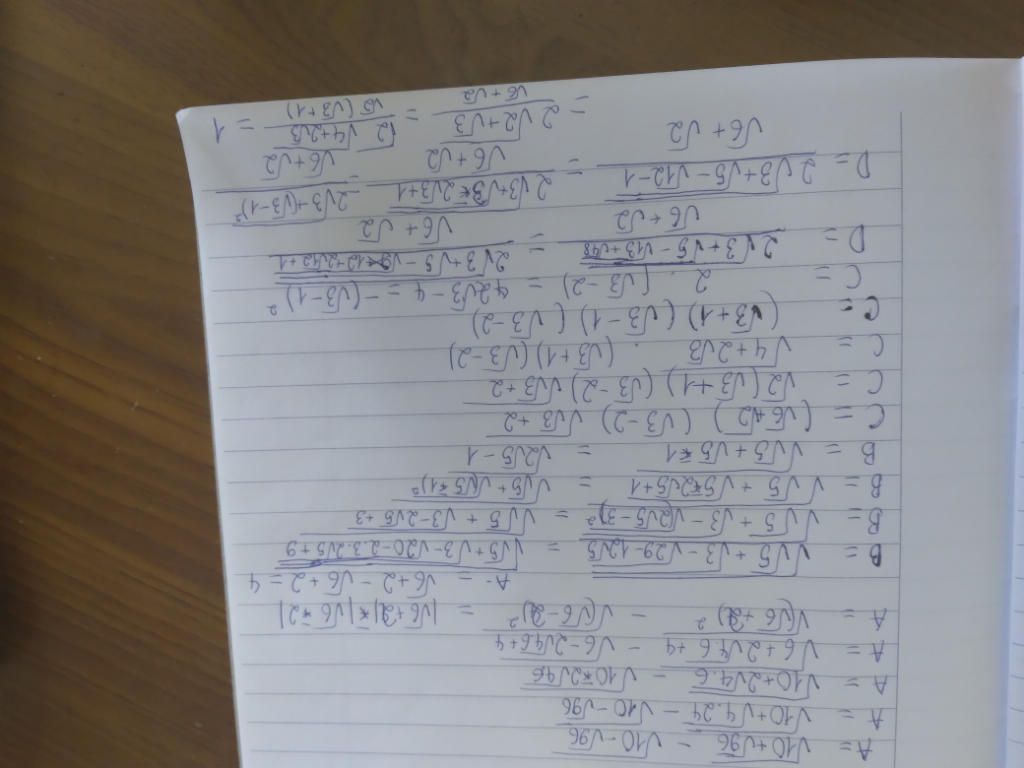 A = √(10+√96) − √(10−√96)
A = √(10+√(4.24)) − √(10−√96)
A = √(10+2√(4.6)) − √(10−2√(4.6))
A = √(6+2√(4.6)+4) − √(6−2√(4.6)+4)
A = √((√6+2)²) − √((√6−2)²) = |√6+2|−|√6−2|
A = √6+2−√6+2 = 4
B = √(√5+√(3−√(29−12√5))) = √(√5+√(3−√(20−2.3.2√5+9)))
B = √(√5+√(3−√((2√5−3)²))) = √(√5+√(3−2√5+3))
B = √(√5+√(5−2√5+1)) = √(√5+√((√5−1)²))
B = √(√5+√5−1) = √(2√5−1)
C = (√6+√2)(√3−2)√(√3+2)
C = √2(√3+1)(√3−2)√(√3+2)
C = √(4+2√3) . (√3+1)(√3−2)
C = (√3+1)(√3−1)(√3−2)
C = 2 . (√3−2) = 2√3−4 = −(√3−1)²
D = 2√(3+√(5−√(13+√48))) / (√6+√2) = 2√(3+√(5−√(12+2√12+1))) / (√6+√2)
D = 2√(3+√(5−√12−1)) / (√6+√2) = 2√(3+√(3−2√3+1)) / (√6+√2) = 2√(3+√((√3−1)²)) / (√6+√2)
= 2√(2+√3) / (√6+√2) = √2√(4+2√3) / (√2(√3+1)) = 1